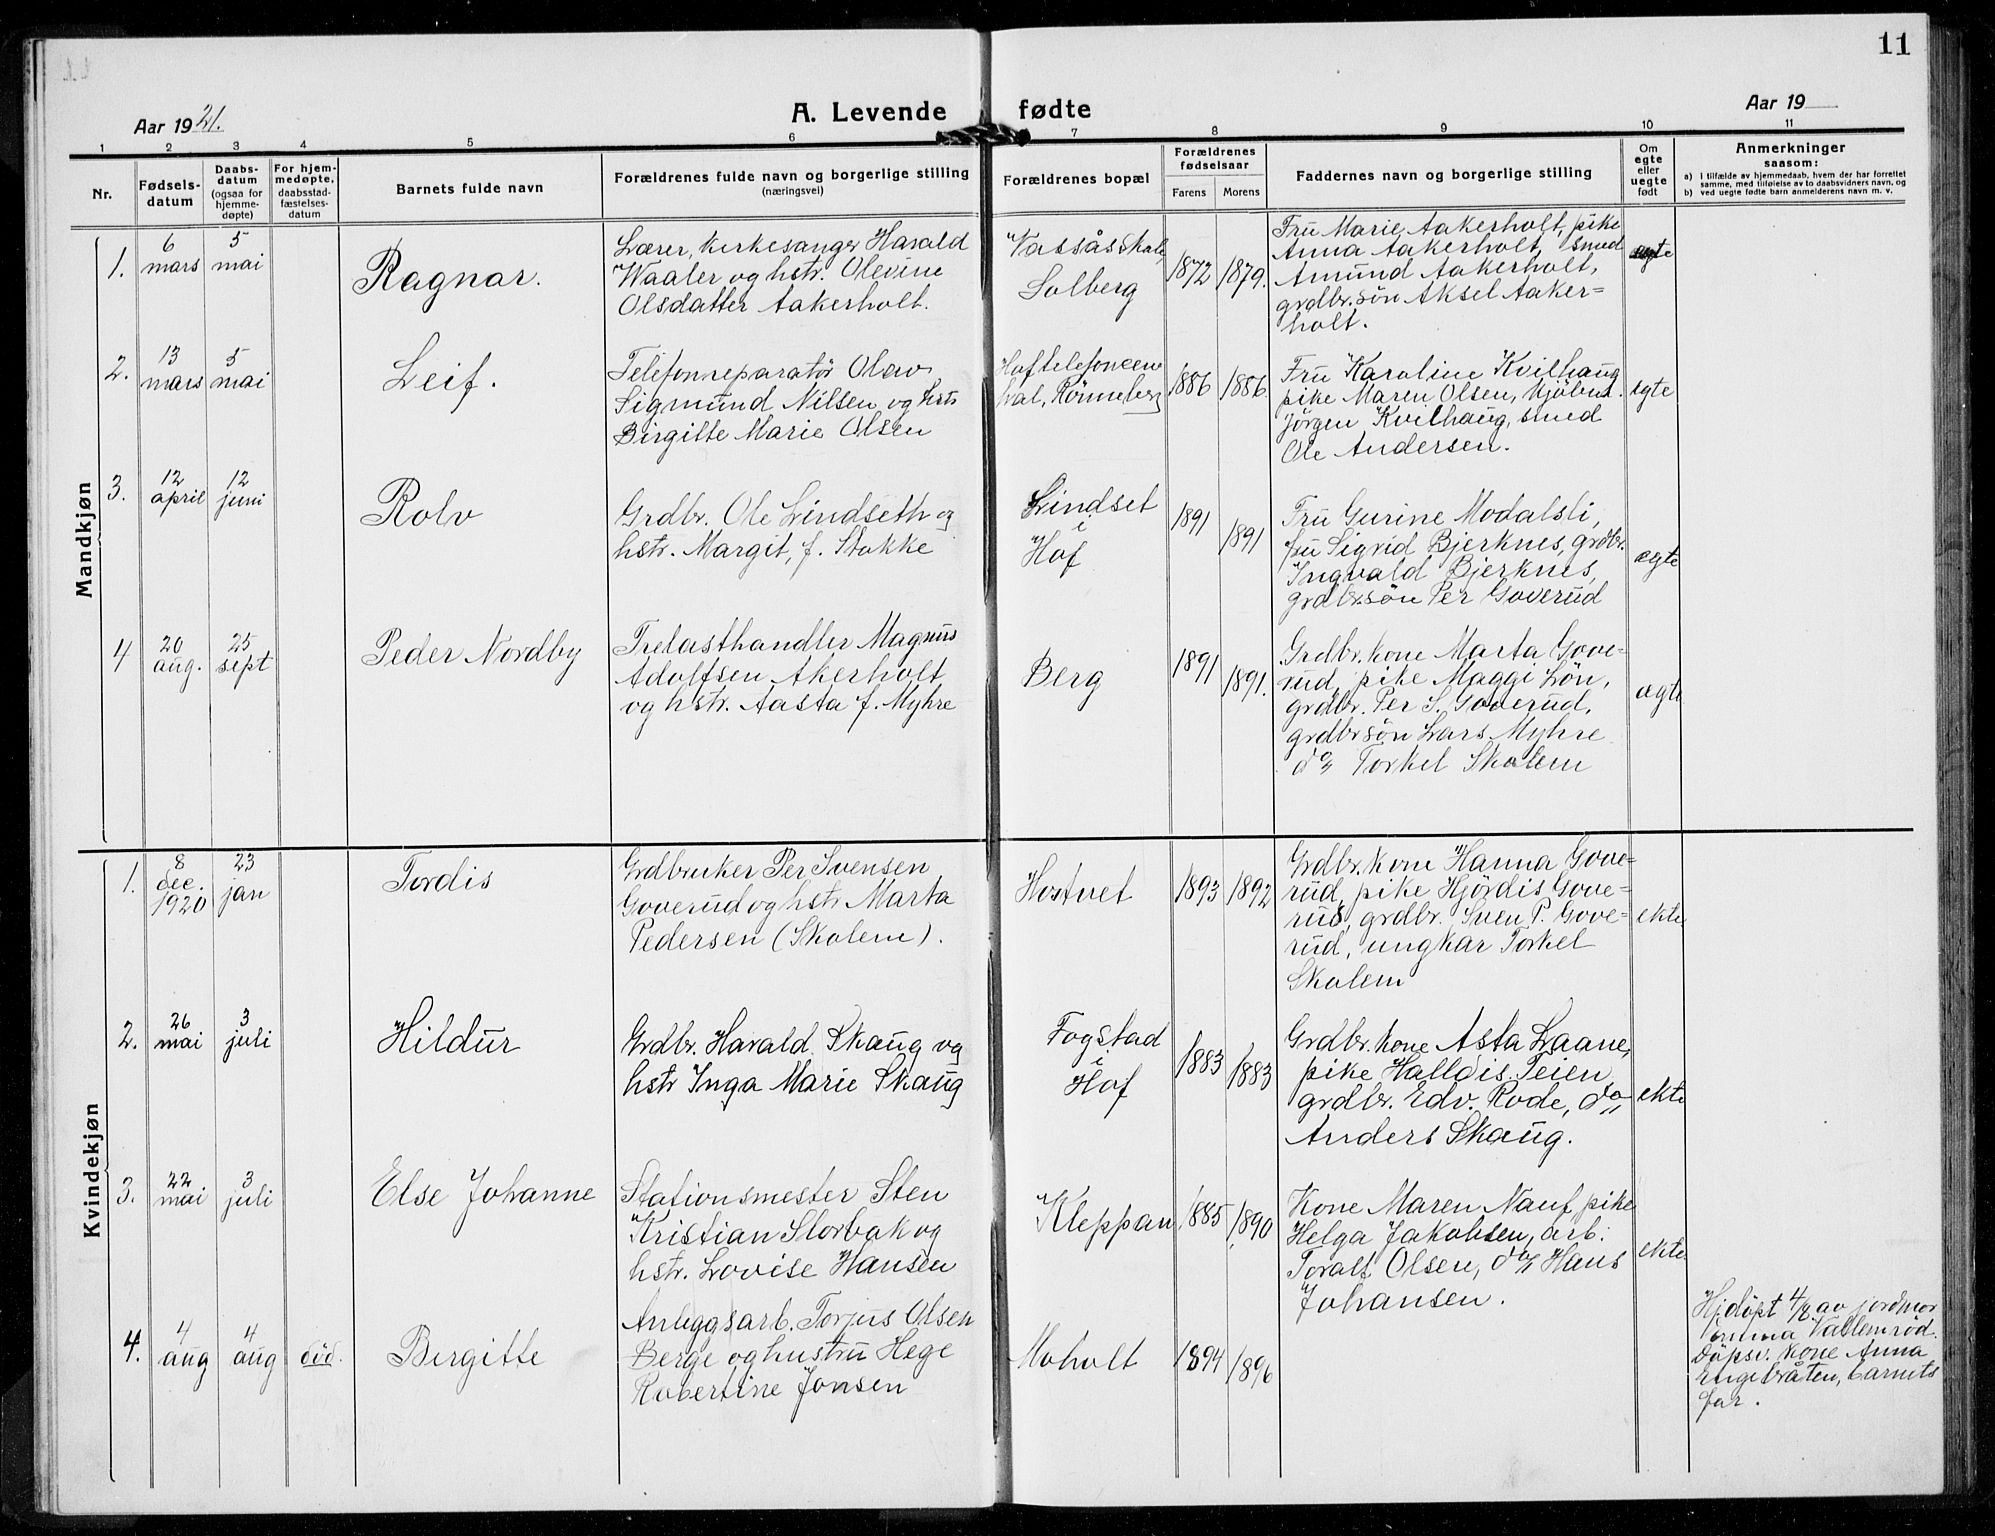 11
Aar 1921.
A. Levende fødte
Aar 19
1 2 3 4 5 6 7 8 9 10 11
Nr.
Fødsels-
datum
Daabs-
datum
(ogsaa for
hjemme-
døpte)
For hjem-
medøpte,
daabsstad-
fæstelses-
datum
Barnets fulde navn
Forældrenes fulde navn og borgerlige stilling
(næringsvei)
Forældrenes bopæl
Forældrenes
fødselsaar
Farens Morens
Faddernes navn og borgerlige stilling
Om
egte
eller
uegte
født
Anmerkninger
saasom:
a) I tilfælde av hjemmedaab, hvem der har forrettet
samme, med tilføielse av to daabsvidners navn, og
b) ved uegte fødte barn anmelderens navn m. v.
Mandkjøn
1.
6
mars
5
mai
Ragnar.
Lærer, kirkesanger Harald
Waaler og hstr. Olevine
Olsdatter Aakerholt.
Vassås skole,
Solberg
1872 1879.
Fru Marie Aakerholt, pike
Anna Aakerholt, smed
Amund Aakerholt,
grdbr.søn Aksel Aaker=
holt.
egte
2.
13
mars
5
mai
Leif.
Telefonreparatør Olav
Sigmund Nilsen og hstr
Birgitte Marie Olsen
Hof telefoncen
tral, Rønneberg
1886 1886
Fru Karoline Kvilhaug
pike Maren Olsen, kjøbm.
Jørgen Kvilhaug, smed
Ole Andersen.
egte
3.
12
april
12
juni
Rolv
Grdbr. Ole Lindseth og
hstr. Margit, f. Stokke
Lindset
i
Hof
1891 1891
Fru Gurine Modalsli,
fru Sigrid Bjerknes, grdbr.
Ingvald Bjerknes,
grdbr.søn Per Goverud
ægte
4
20
aug.
25
sept
Peder Nordby
Trelasthandler Magnus
Adolfsen Akerholt
og hstr. Aasta f. Myhre
Berg
1891 1891.
Grdbr.kone Marta Gove=
rud, pike Maggi Løn,
grdbr. Per S. Goverud,
grdbrsøn Lars Myhre
do Torkel Skolem
ægte
Kvindekjøn
1.
8
dec.
1920
23
jan
Tordis
Grdbruker Per Svensen
Goverud og hstr Marta
Pedersen (Skolem).
Hostvet
1893 1892
Grdbr.kone Hanna Gove=
rud, pike Hjördis Gove=
rud, grdbr. Sven P. Gove=
rud, ungkar Torkel
Skolem
ekte
2.
26
mai
3
juli
Hildur
Grdbr. Harald Skaug og
hstr Inga Marie Skaug
Fogstad
i
Hof
1883 1883
Grdbr.kone Asta Laane,
pike Halldis Teien
grdbr. Edv. Rode, do
Anders Skaug.
ekte
3.
22
mai
3
juli
Else Johanne
Stationsmester Sten
Kristian Storbak og
hstr. Lovise Hansen
Kleppan
1885 1890
Kone Maren Nauf, pike
Helga Jakobsen, arb.
Toralf Olsen, do Hans
Johansen.
ekte
4.
4
aug
4
aug
død.
Birgitte
Anleggsarb. Torjus Olsen
Berge og hustru Hege
Robertine Jonsen
Moholt
1894 1896
Hjdöpt 4/8 av jordmor
Emma Vallemrød.
Döpsv. kone Anna
Engebråten, barnets
far.